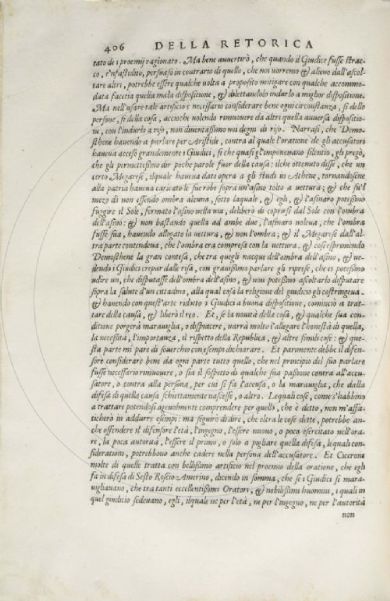 406 DELLA RETORICA
tato de i proemij ragionato. Ma bene auuertirò, che quando il Giudice fusse strac-
co, infastidito, persuaso in contrario di quello, che noi uorremo & alieno dall'ascol-
tare altri, potrebbe essere qualche uolta a proposito mitigare con qualche accommo-
data facetia quella mala dispositione, & allettandolo indurlo a miglior dispositione.
Ma nell'usare tale artificio è necessario considerare bene ogni circonstanza, si delle
persone, si della cosa, accioche uolendo rimouere da altri quella auuersa dispositio-
ne, con l'indurlo a riso, non diuentassimo noi degni di riso. Narrasi, che Demo-
sthene hauendo a parlare per Aristide, contra al quale l'oratione de gli accusatori
haueua acceso grandemente i Giudici, si che quasi gl'imponeuano silentio, gli pregò,
che gli permettessino dir poche parole fuor della causa: il che ottenuto disse, che un
certo Megarese, il quale haueua dato opera a gli studi in Athene, tornandosene
alla patria haueua caricato le sue robe sopra un'asino tolto a uettura; & che su'l
mezo dì non essendo ombra alcuna, sotto la quale, & egli, & l'asinaro potessino
fuggire il Sole, fermato l'asino nella uia, deliberò di coprirsi dal Sole con l'ombra
dell'asino: & non bastando quella ad amendue, l'asinaro uoleua, che l'ombra
fusse sua, hauendo allogato la uettura, & non l'ombra; & il Megarese dall'al-
tra parte contendeua, che l'ombra era compresa con la uettura. & così esprimendo
Demosthene la gran contesa, che tra quegli nacque dell'ombra dell'asino, & ue-
dendo i Giudici crepar dalle risa, con grauissimo parlare gli riprese, che ei potessino
udire un, che disputasse dell'ombra dell'asino, & non potessino ascoltarlo disputare
sopra la salute d'un cittadino, alla qual cosa la religione del giudicio gli costringeua.
& hauendo con quest'arte ridutto i Giudici a buona dispositione, cominciò a trat-
tare della causa, & liberò il reo. Et, se la nouità della cosa, & qualche sua con-
ditione porgerà marauiglia, o dispiacere, uarrà molto l'allegare l'honestà di quella,
la necessità, l'importanza, il rispetto della Republica, & altre simili cose: & que-
sta parte mi pare di souerchio con esempi dichiarare. Et parimente debbe il difen-
sore considerar bene da ogni parte tutto quello, che nel principio del suo parlare
fusse necessario rimouere, o sia il sospetto di qualche sua passione contra all'accu-
satore, o contra alla persona, per cui si fa l'accusa, o la marauiglia, che dalla
difesa di quella causa schiettamente nascesse, o altro. Le quali cose, come s'habbino
a trattare potendosi ageuolmente comprendere per quelli, che è detto, non m'affa-
ticherò in addurre esempi: ma seguirò dire, che oltra le cose dette, potrebbe an-
che offendere il difensore l'età, l'ingegno, l'essere nuouo, o poco esercitato nell'ora-
re, la poca autorità, l'essere il primo, o solo a pigliare quella difesa, le quali con-
siderationi, potrebbono anche cadere nella persona dell'accusatore. Et Cicerone
molte di quelle tratta con bellissimo artificio nel proemio della oratione, che egli
fa in difesa di Sesto Roscio Amerino, dicendo in somma, che se i Giudici si mara-
uigliauano, che tra tanti eccellentissimi Oratori, & nobilissimi huomini, i quali in
quel giudicio sedeuano, egli, il quale ne per l'età, ne per l'ingegno, ne per l'autorità
non